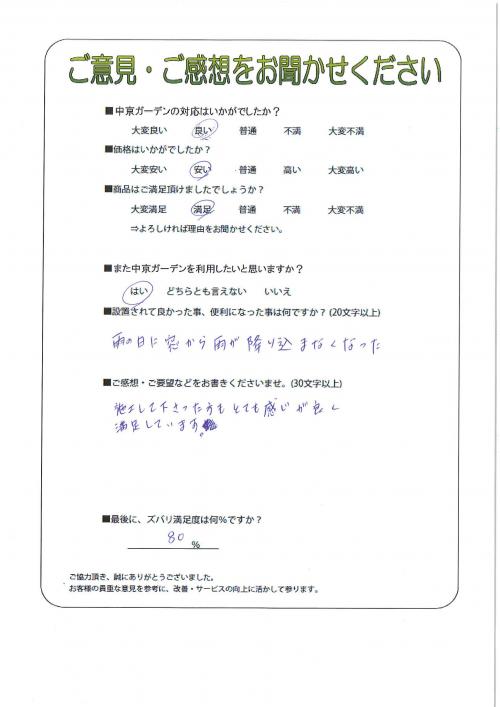 ご意見・ご感想をお聞かせください
■中京ガーデンの対応はいかがでしたか？
大変良い 良い 普通 不満 大変不満
■価格はいかがでしたか？
大変安い 安い 普通 高い 大変高い
■商品はご満足頂けましたでしょうか？
大変満足 満足 普通 不満 大変不満
⇒よろしければ理由をお聞かせください。
■また中京ガーデンを利用したいと思いますか？
はい どちらとも言えない いいえ
■設置されて良かった事、便利になった事は何ですか？(20文字以上)
雨の日に窓から雨が降り込まなくなった
■ご感想・ご要望などをお書きくださいませ。(30文字以上)
施工して下さった方もとても感じが良く
満足しています。
■最後に、ズバリ満足度は何%ですか？
80 %
ご協力頂き、誠にありがとうございました。
お客様の貴重な意見を参考に、改善・サービスの向上に活かして参ります。